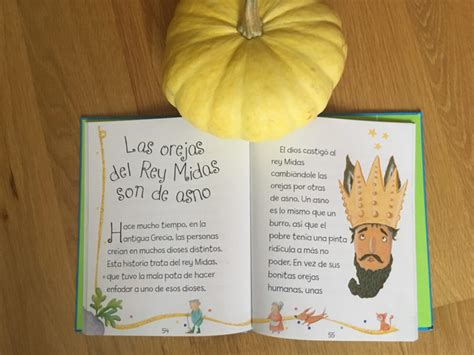 Las orejas
del Rey Midas
son de asno
Hace mucho tiempo, en la
antigua Grecia, las personas
creían en muchos dioses distintos.
Esta historia trata del rey Midas,
que tuvo la mala pata de hacer
enfadar a uno de esos dioses.
54
El dios castigó al
rey Midas
cambiándole las
orejas por otras
de asno. Un asno
es lo mismo que un
burro, así que el
pobre tenía una pinta
ridícula a más no
poder. En vez de sus
bonitas orejas
humanas, unas
55